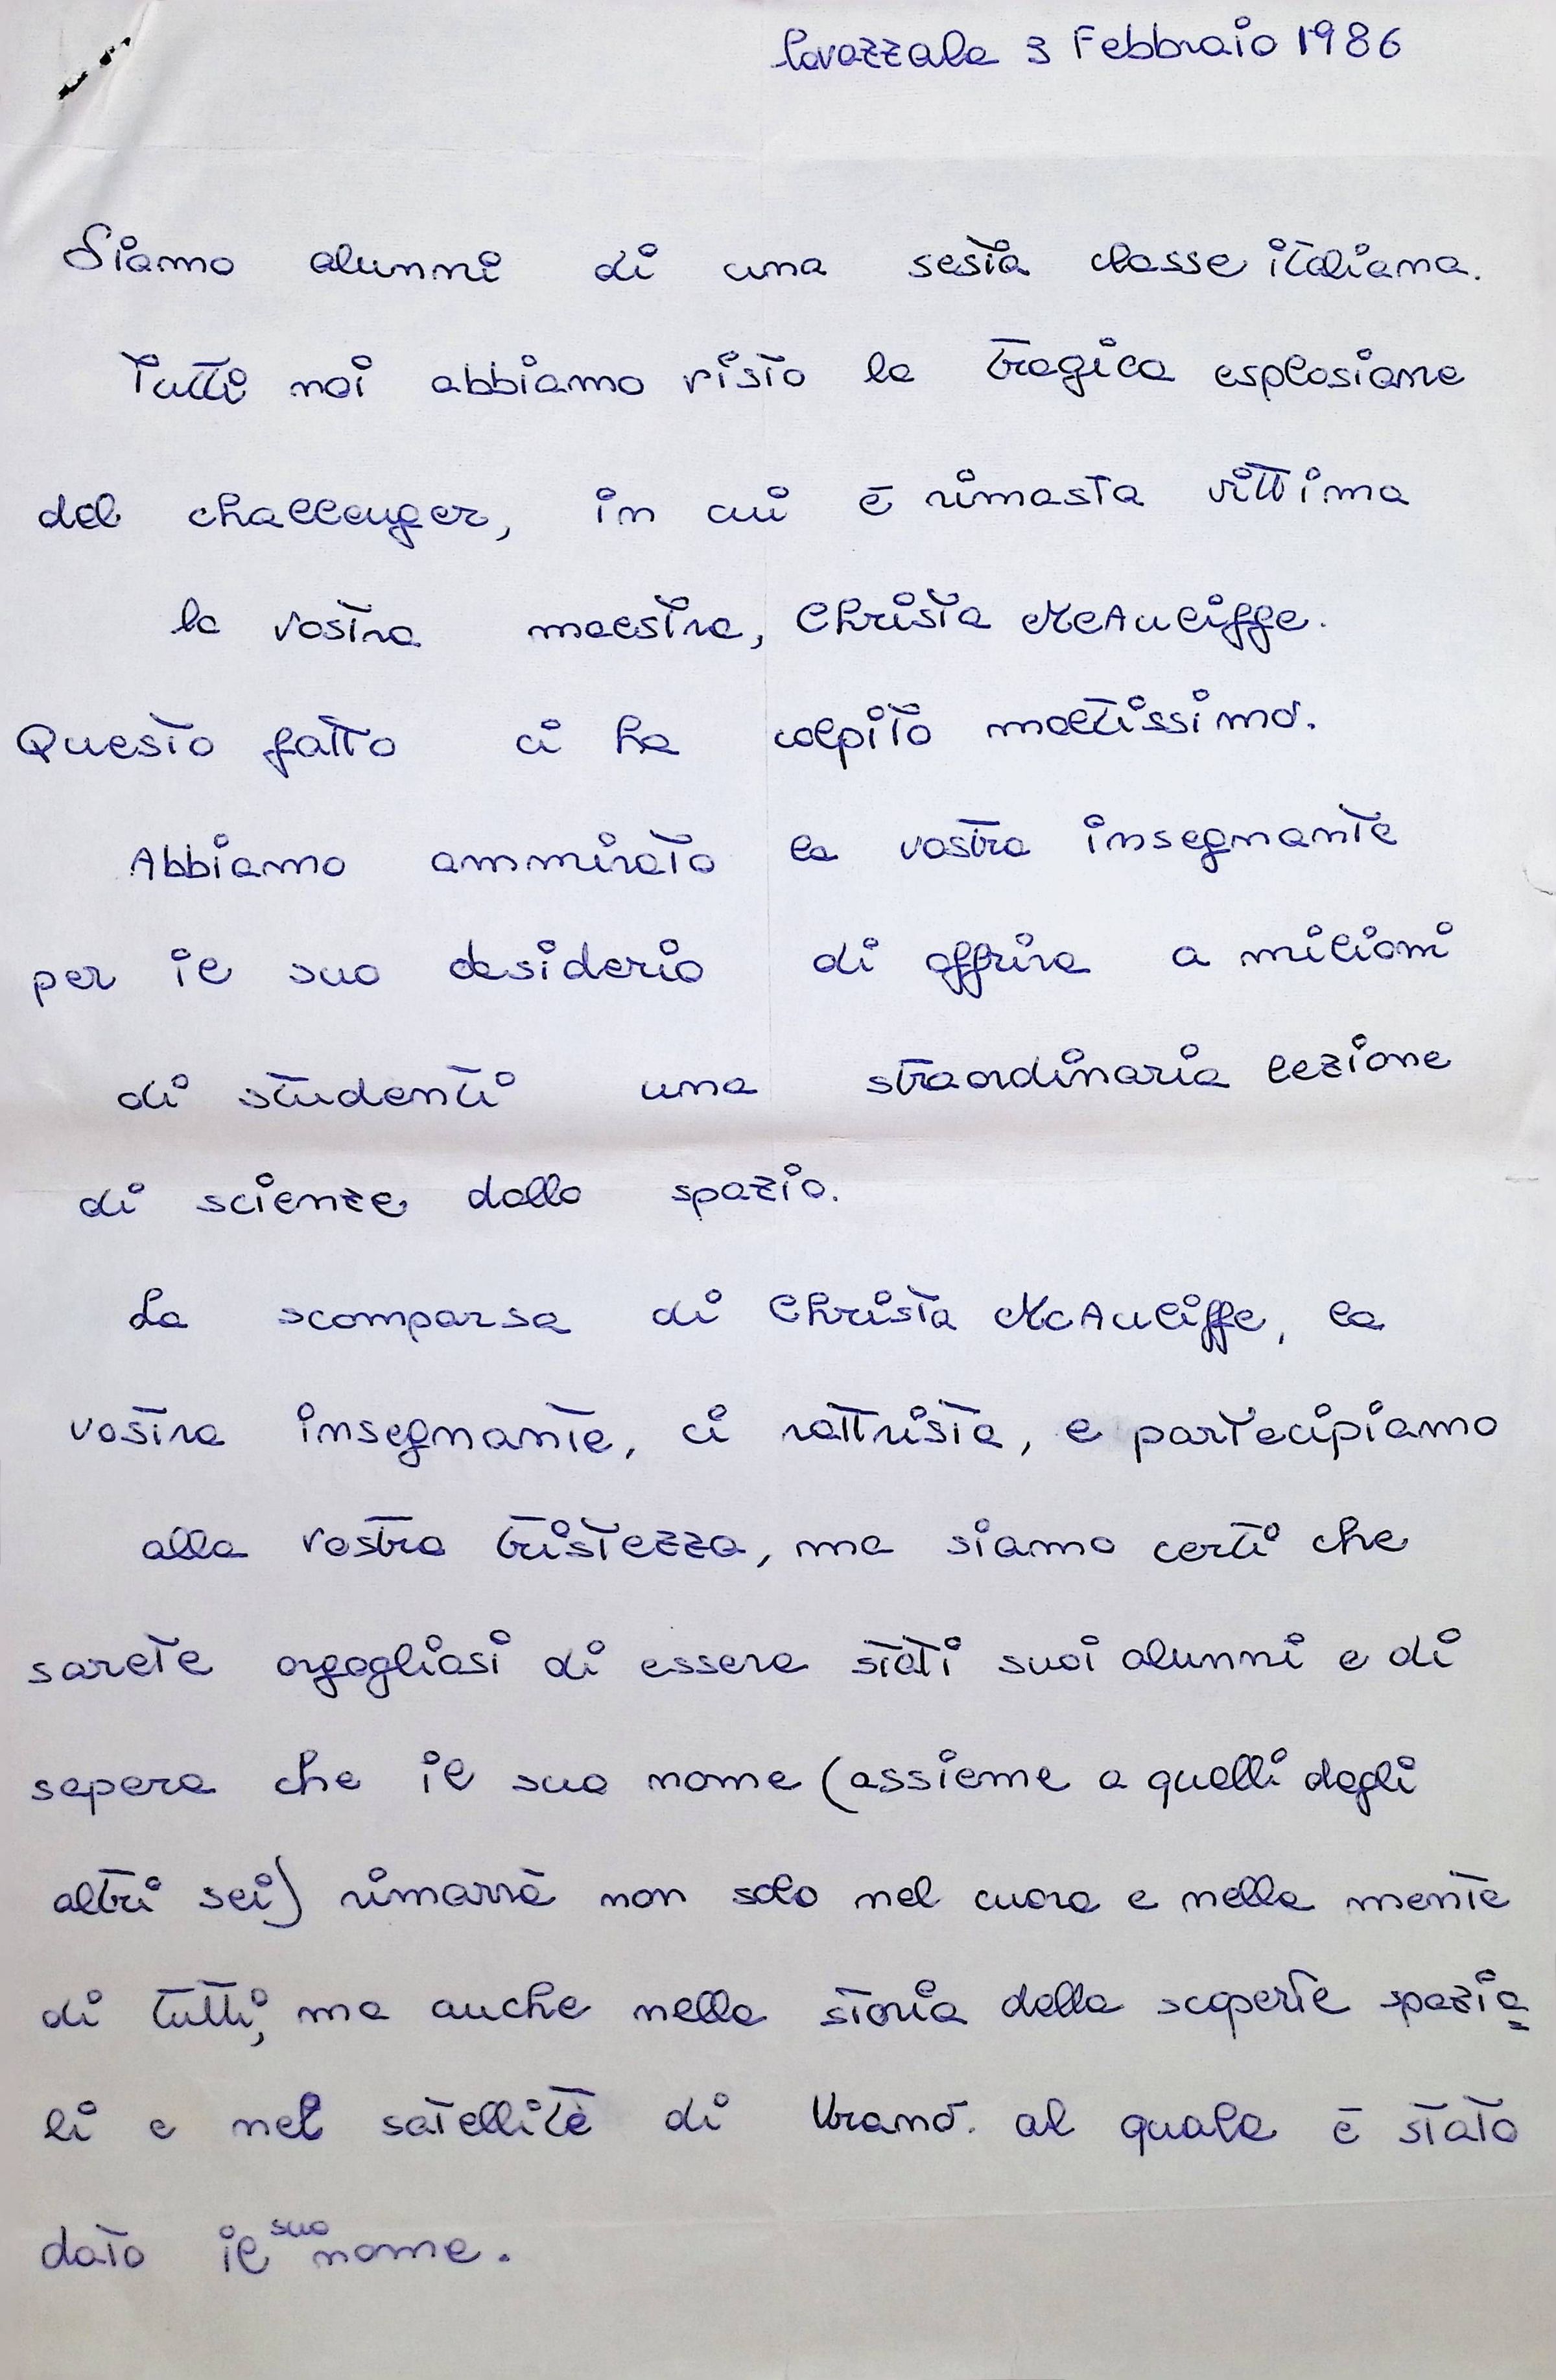 Covazzale 3 Febbraio 1986
Siamo alunni di una sesta classe italiana.
Tutti noi abbiamo visto la tragica esplosione
del challenger, in cui è rimasta vittima
la vostra maestra, Christa McAuliffe.
Questo fatto ci ha colpito moltissimo.
Abbiamo ammirato la vostra insegnante
per il suo desiderio di offrire a milioni
di studenti una straordinaria lezione
di scienze dallo spazio.
La scomparsa di Christa McAuliffe, la
vostra insegnante, ci rattrista, e partecipiamo
alla vostra tristezza, ma siamo certi che
sarete orgogliosi di essere stati suoi alunni e di
sapere che il suo nome (assieme a quelli degli
altri sei) rimarrà non solo nel cuore e nella mente
di tutti, ma anche nella storia delle scoperte spazia=
li e nel satellite di Urano. al quale è stato
dato il suo nome.